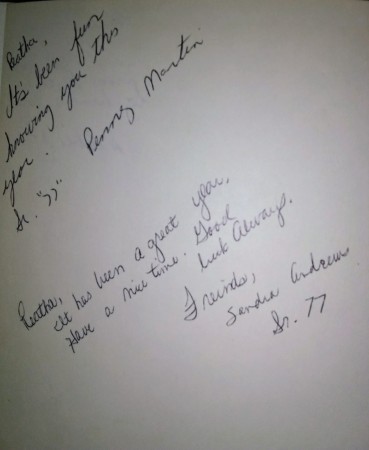 Reatha,
It's been fun
knowing you this
year.
Penny Martin
Sr. "77"
Reatha,
It has been a great year,
Have a nice time. Good
luck Always.
Freinds,
Sandra Andrews
Sr. 77